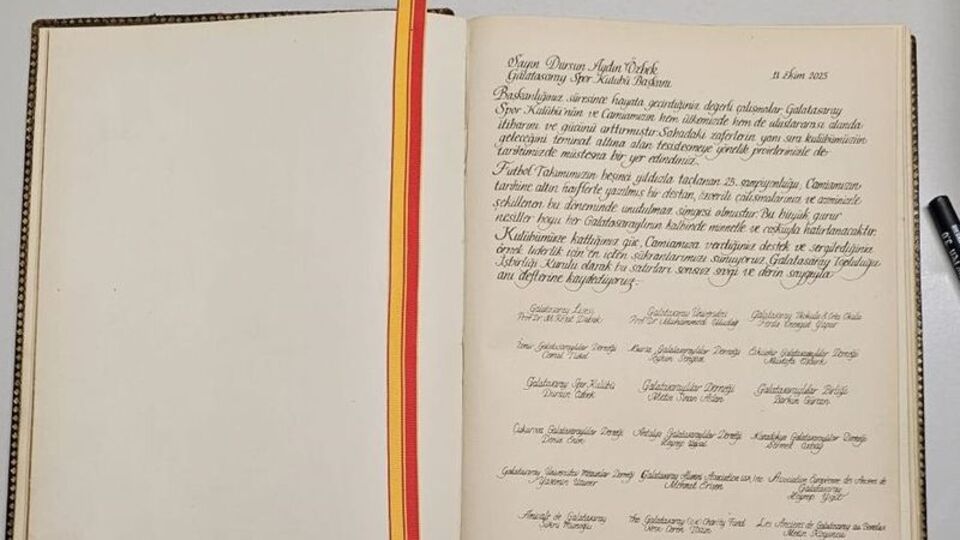 Sayın Dursun Aydın Özbek
Galatasaray Spor Kulübü Başkanı
11 Ekim 2025
Başkanlığınız süresince hayata geçirdiğiniz değerli çalışmalar, Galatasaray
Spor Kulübü'nün ve Camiamızın hem ülkemizde hem de uluslararası alanda
itibarını ve gücünü arttırmıştır. Sahadaki zaferlerin yanı sıra kulübümüzün
geleceğini teminat altına alan tesisleşmeye yönelik projelerinizle de
tarihimizde müstesna bir yer edindiniz.
Futbol Takımımızın beşinci yıldızla taçlanan 25. şampiyonluğu, Camiamızın
tarihine altın harflerle yazılmış bir destan, özverili çalışmalarınız ve azminizle
şekillenen bu döneminde unutulmaz simgesi olmuştur. Bu büyük gurur
nesiller boyu her Galatasaraylının kalbinde minnetle ve coşkuyla hatırlanacaktır.
Kulübümüze kattığınız güç, Camiamıza verdiğiniz destek ve sergilediğiniz
örnek liderlik için en içten şükranlarımızı sunuyoruz. Galatasaray Topluluğu
İşbirliği Kurulu olarak bu satırları sonsuz sevgi ve derin saygıyla
anı defterine kaydediyoruz.
Galatasaray Lisesi
Prof. Dr. M.
Galatasaray Üniversitesi
Prof. Dr. Muhammed Uludağ
Galatasaray İlkokulu & Orta Okulu
İzmir Galatasaraylılar Derneği
Cemal Tükel
Bursa Galatasaraylılar Derneği
Eskişehir Galatasaraylılar Derneği
Mustafa
Galatasaray Spor Kulübü
Dursun Özbek
Galatasaraylılar Derneği
Metin Sinan Aslan
Galatasaraylılar Birliği
Çukurova Galatasaraylılar Derneği
Antalya Galatasaraylılar Derneği
Zeynep
Karadeniz Galatasaraylılar Derneği
Galatasaray Üniversitesi Mezunlar Derneği
Yasemin
Galatasaray Alumni Association USA, Inc
Mehmet
Association Européenne des Anciens de
Galatasaray
Zeynep Yiğit
Amicale de Galatasaray
The Galatasaray Charity Fund
Les Anciens de Galatasaray au Benelux
Metin
3.0